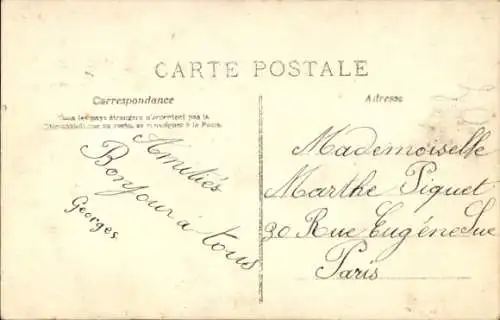 CARTE POSTALE
Correspondance
Tous les pays étrangers n'acceptent pas la
Correspondance au recto, se renseigner à la Poste.
Amitiés
Bonjour à tous
Georges
Adresse
Mademoiselle
Marthe Piquet
30 Rue Eugène Sue
Paris